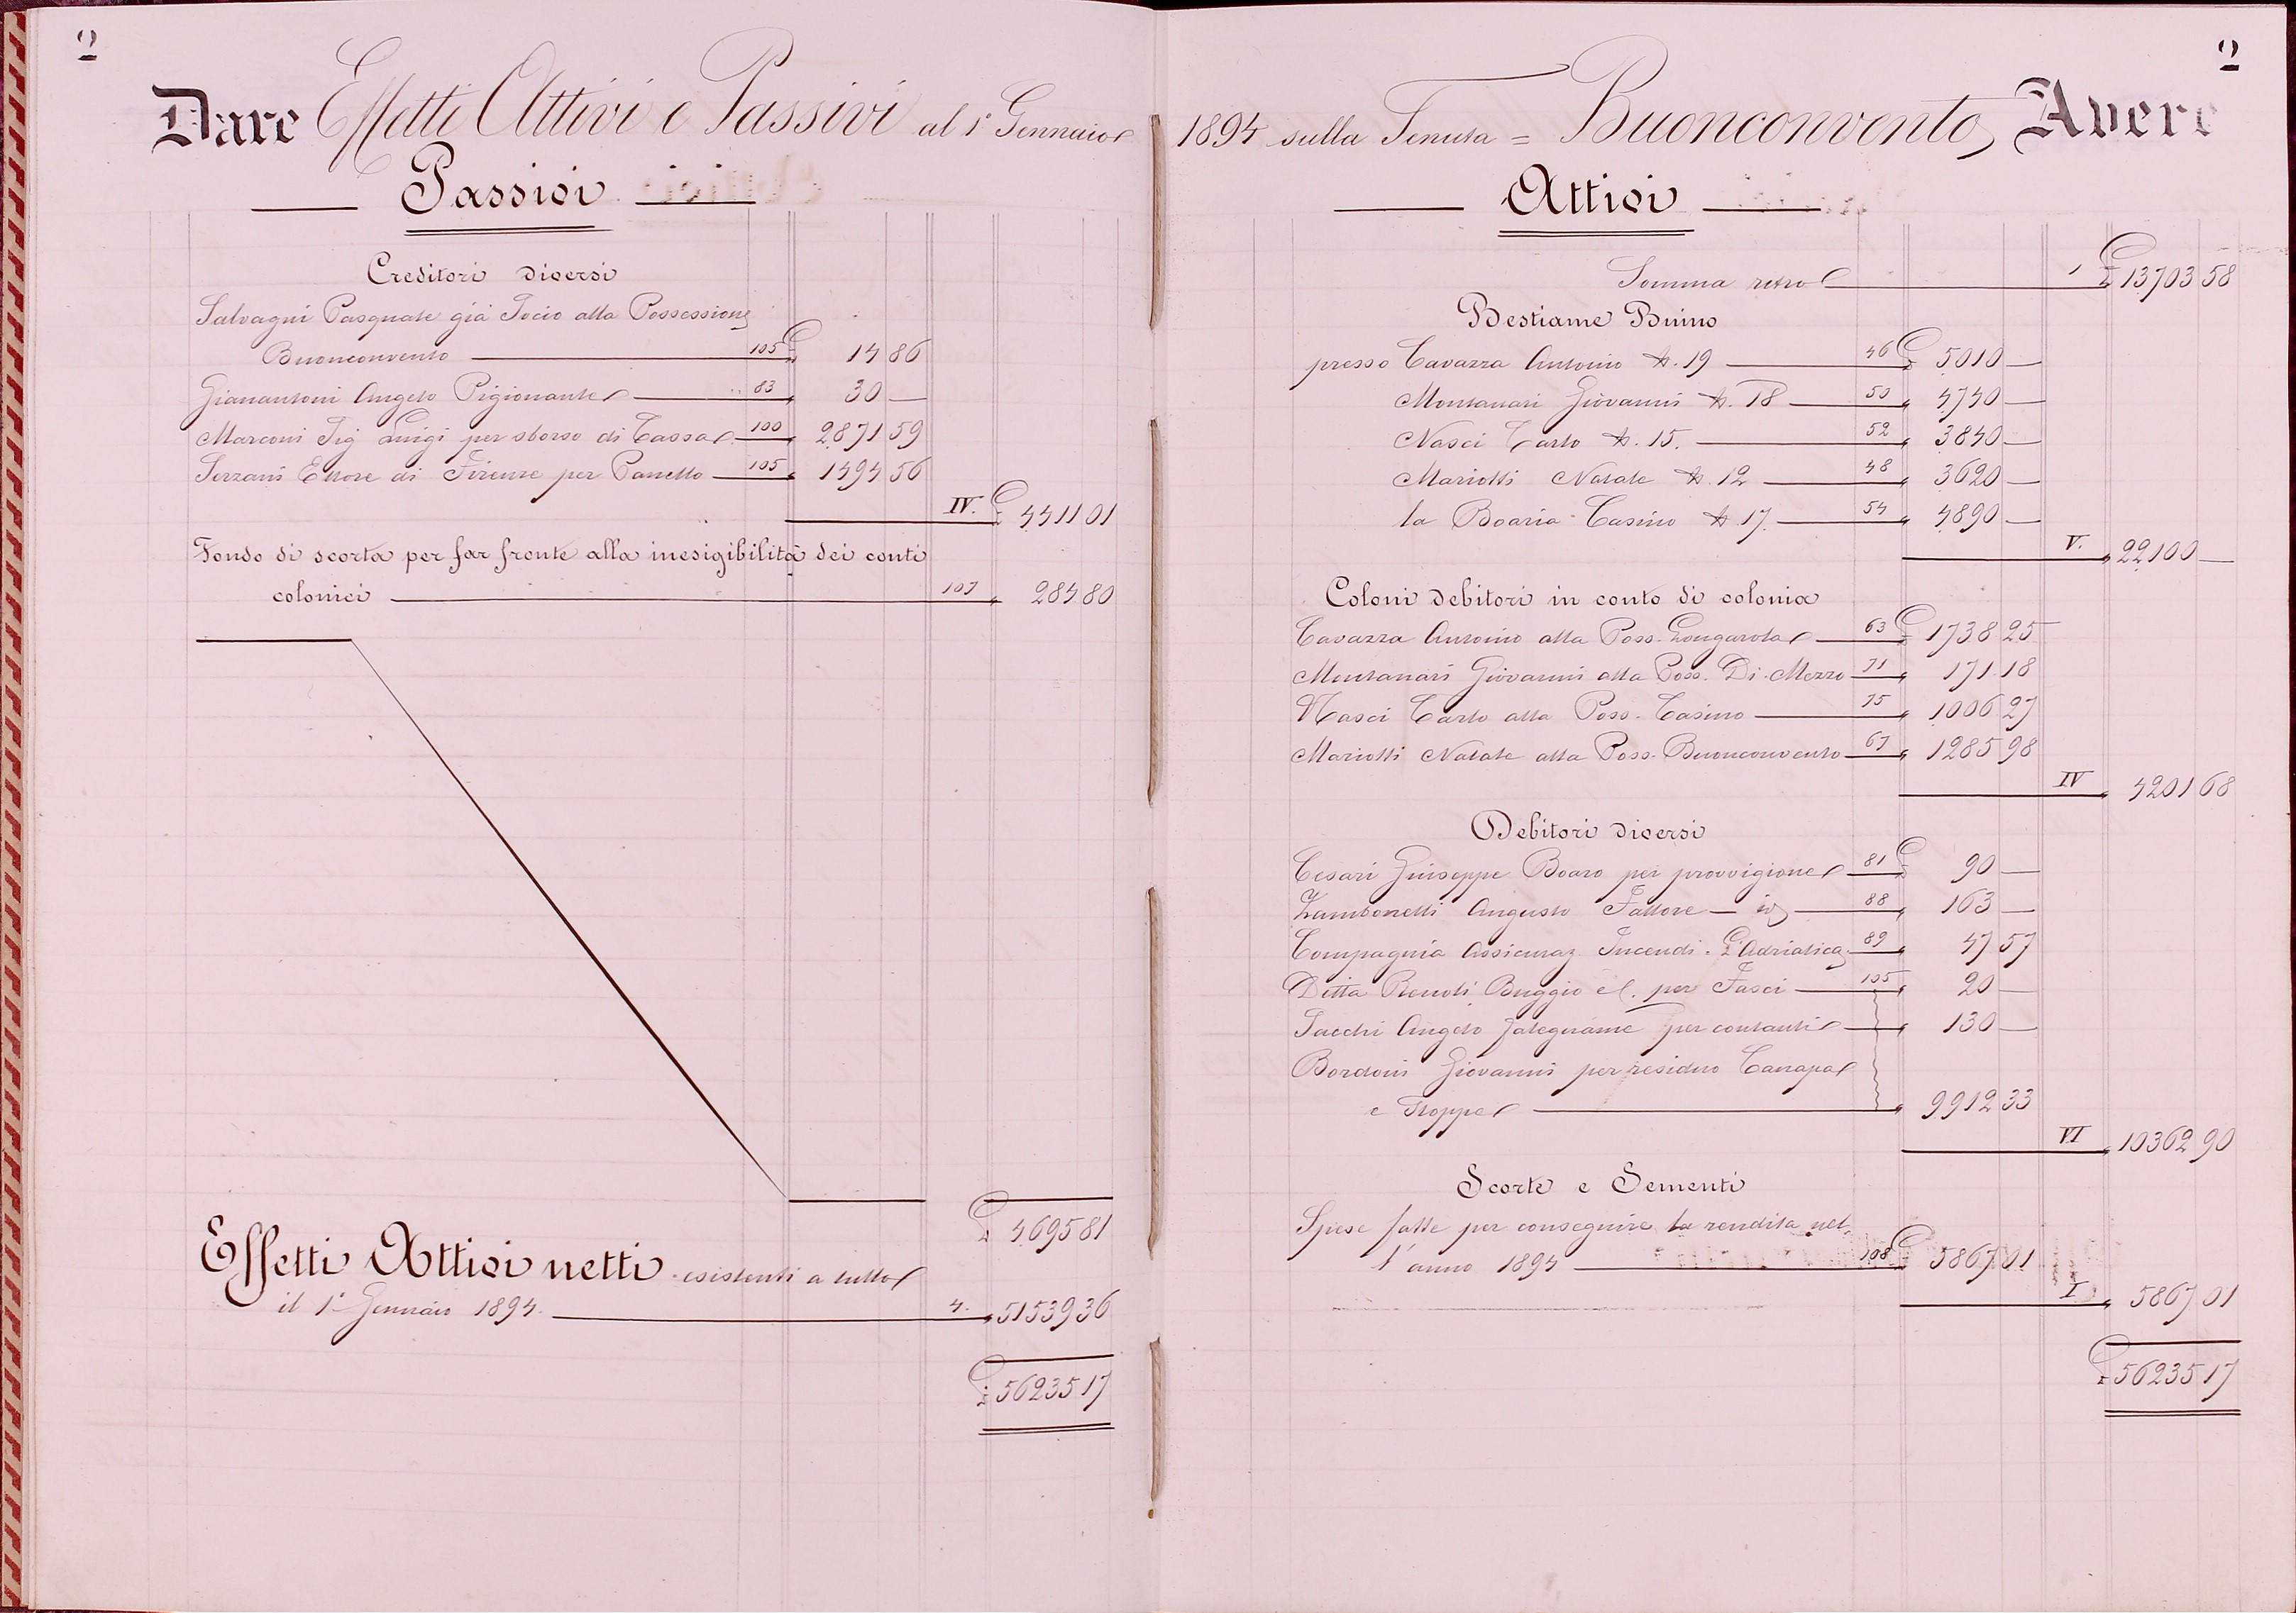 2
Dare Effetti Attivi e Passivi al 1° Gennaio
Passivi
Creditori diversi
Salvagni Pasquale già Socio alla Possessione
Buonconvento 105 £ 14 86
Gianantoni Angelo Pigionante 83 „ 30 —
Marconi Sig Luigi per sborso di Cassa 100 „ 2871 59
Serzani Ettore di Firenze per Panello 105 „ 1494 56
IV. £ 4411 01
Fondo di scorta per far fronte alla inesigibilità dei conti
colonici 107 „ 284 80
£ 4695 81
Effetti Attivi netti esistenti a tutto
il 1° Gennaio 1894. 4. „ 51539 36
£ 56235 17
2
1894 sulla Tenuta = Buonconvento Avere
Attivi
Somma retro 1 £ 13703 58
Bestiame Buino
presso Cavazza Antonino N. 19 46 £ 5010 —
Montanari Giovanni N. 18 50 „ 4740 —
Nasci Carlo N. 15. 52 „ 3840 —
Mariotti Natale N. 12 48 „ 3620 —
la Boaria Casino N. 17. 54 „ 4890 —
V. „ 22100 —
Coloni debitori in conto di colonia
Cavazza Antonino alla Poss. Longarola 63 £ 1738 25
Montanari Giovanni alla Poss. Di Mezzo 71 „ 171 18
Nasci Carlo alla Poss. Casino 75 „ 1006 27
Mariotti Natale alla Poss. Buonconvento 67 „ 1285 98
IV „ 4201 68
Debitori diversi
Cesari Giuseppe Boaro per provvigione 81 £ 90 —
Zambonelli Augusto Fattore — id 88 „ 163 —
Compagnia Assicuraz Incendi. L'Adriatica 89 „ 47 57
Ditta Buggio e C. per Fasci 105 „ 20 —
Sacchi Angelo falegname per contanti „ 130 —
Bordoni Giovanni per residuo Canapa
e Stoppe „ 9912 33
VI „ 10362 90
Scorte e Sementi
Spese fatte per conseguire la rendita nel-
l'anno 1894 108 £ 5867 01
I „ 5867 01
£ 56235 17